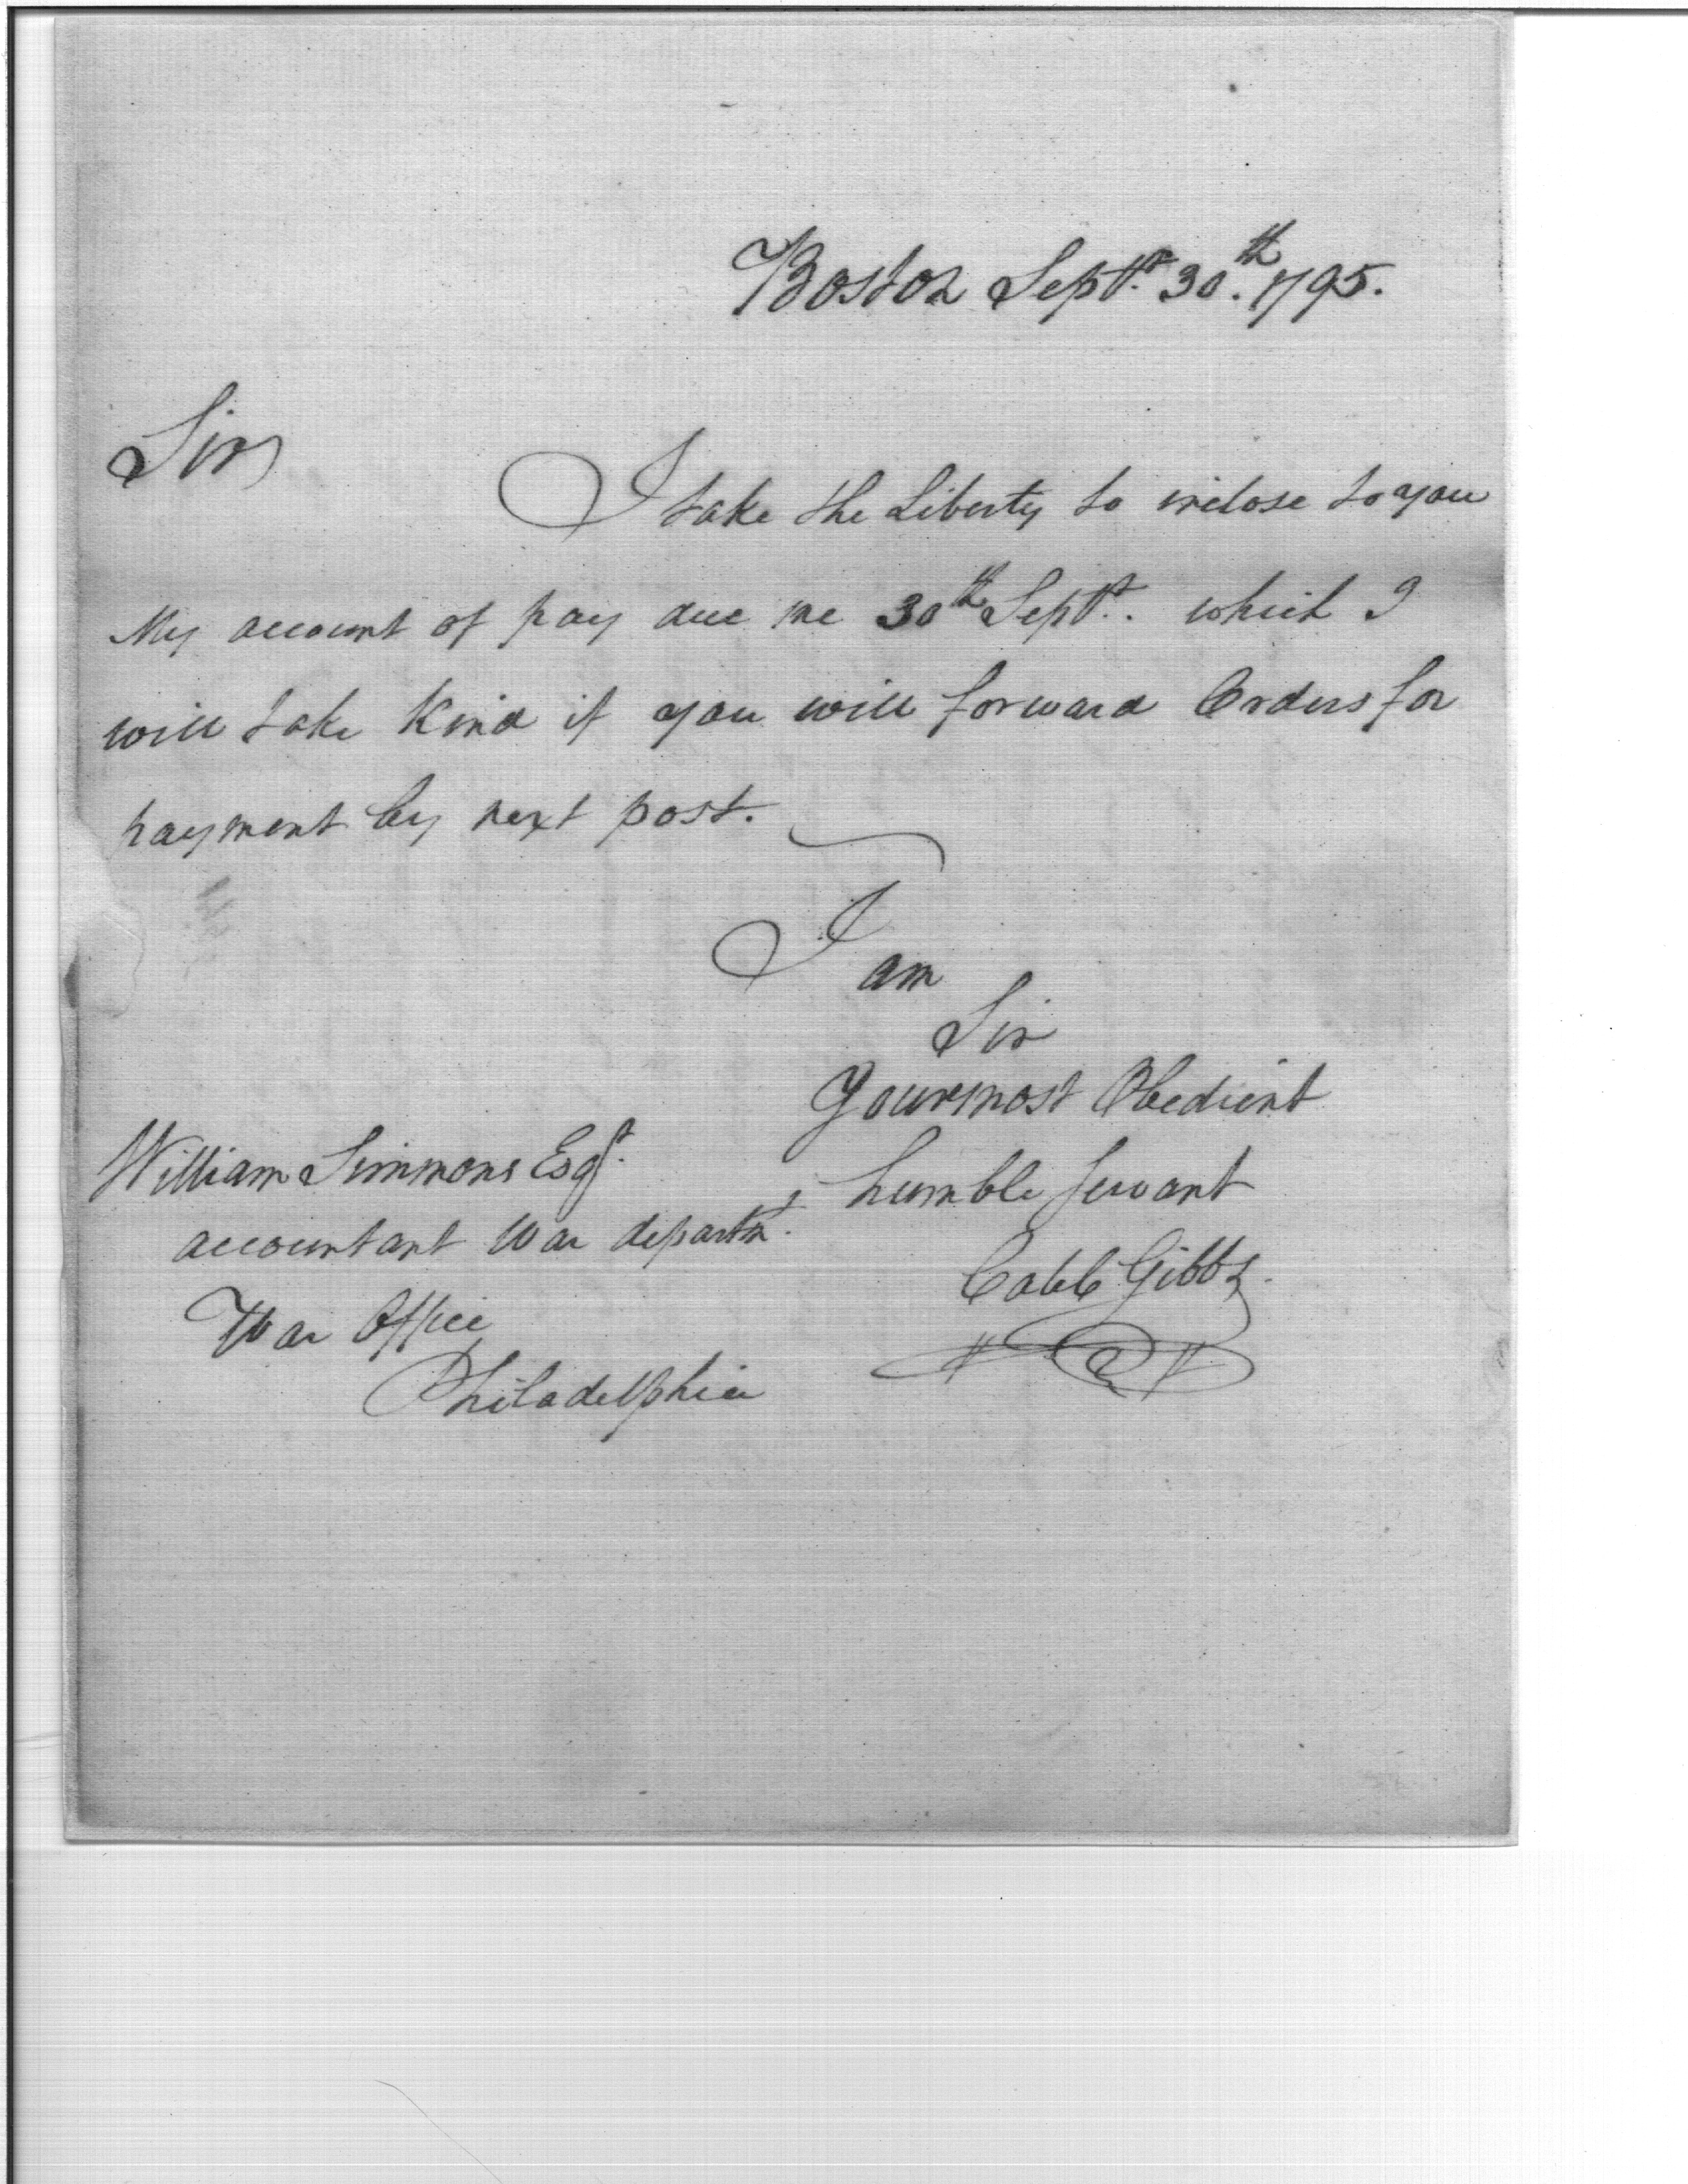 Boston Septr. 30th. 1795.
Sir
I take the Liberty to inclose to you
My account of pay due me 30th Septr. which I
will take Kind if you will forward Orders for
payment by next post.
I am
Sir
Your most Obedient
humble servant
Caleb Gibbs
William Simmons Esqr.
accountant War departmt.
War Office
Philadelphia